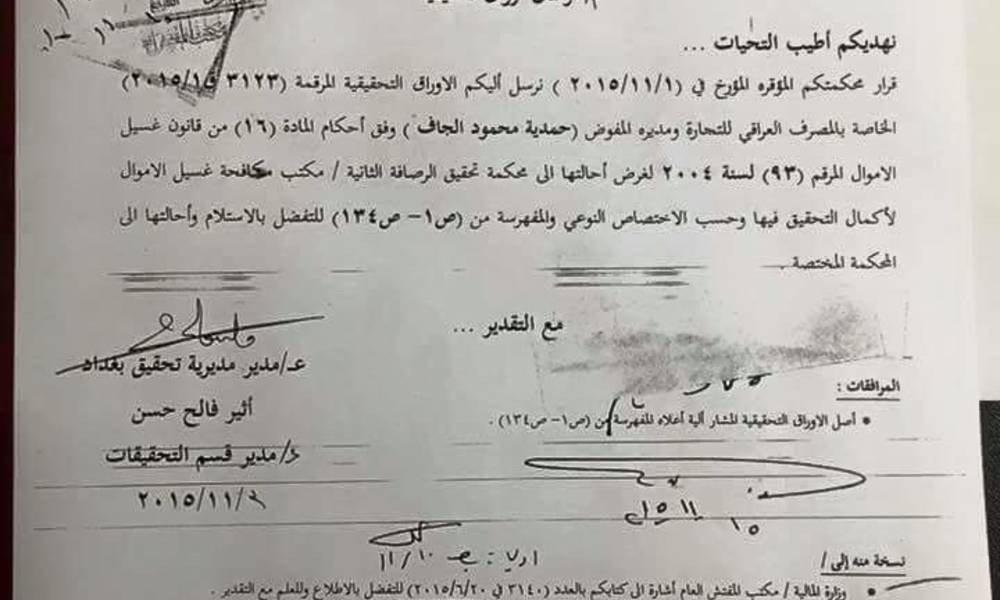 نهديكم أطيب التحيات ...
قرار محكمتكم المؤقره المؤرخ في (٢٠١٥/١١/١ ) نرسل أليكم الاوراق التحقيقية المرقمة (٣١٢٣ في ٢٠١٥/١٥)
الخاصة بالمصرف العراقي للتجارة ومديره المفوض (حمدية محمود الجاف ) وفق أحكام المادة (١٦) من قانون غسيل
الاموال المرقم (٩٣) لسنة ٢٠٠٤ لغرض أحالتها الى محكمة تحقيق الرصافة الثانية / مكتب مكافحة غسيل الاموال
لأكمال التحقيق فيها وحسب الاختصاص النوعي والمفهرسة من (ص١– ص١٣٤) للتفضل بالاستلام وأحالتها الى
المحكمة المختصة .
مع التقدير ...
عـ/مدير مديرية تحقيق بغداد
المرافقات :
أثير فالح حسن
• أصل الاوراق التحقيقية المشار آلية أعلاه المفهرسة من (ص١– ص١٣٤) .
د/مدير قسم التحقيقات
٢٠١٥/١١/
١١/١٠
نسخة منه إلى /
• وزارة المالية / مكتب المفتش العام أشارة الى كتابكم بالعدد (٣١٤٠ في ٢٠١٥/٦/٢٠) للتفضل بالاطلاع وللعلم مع التقدير .